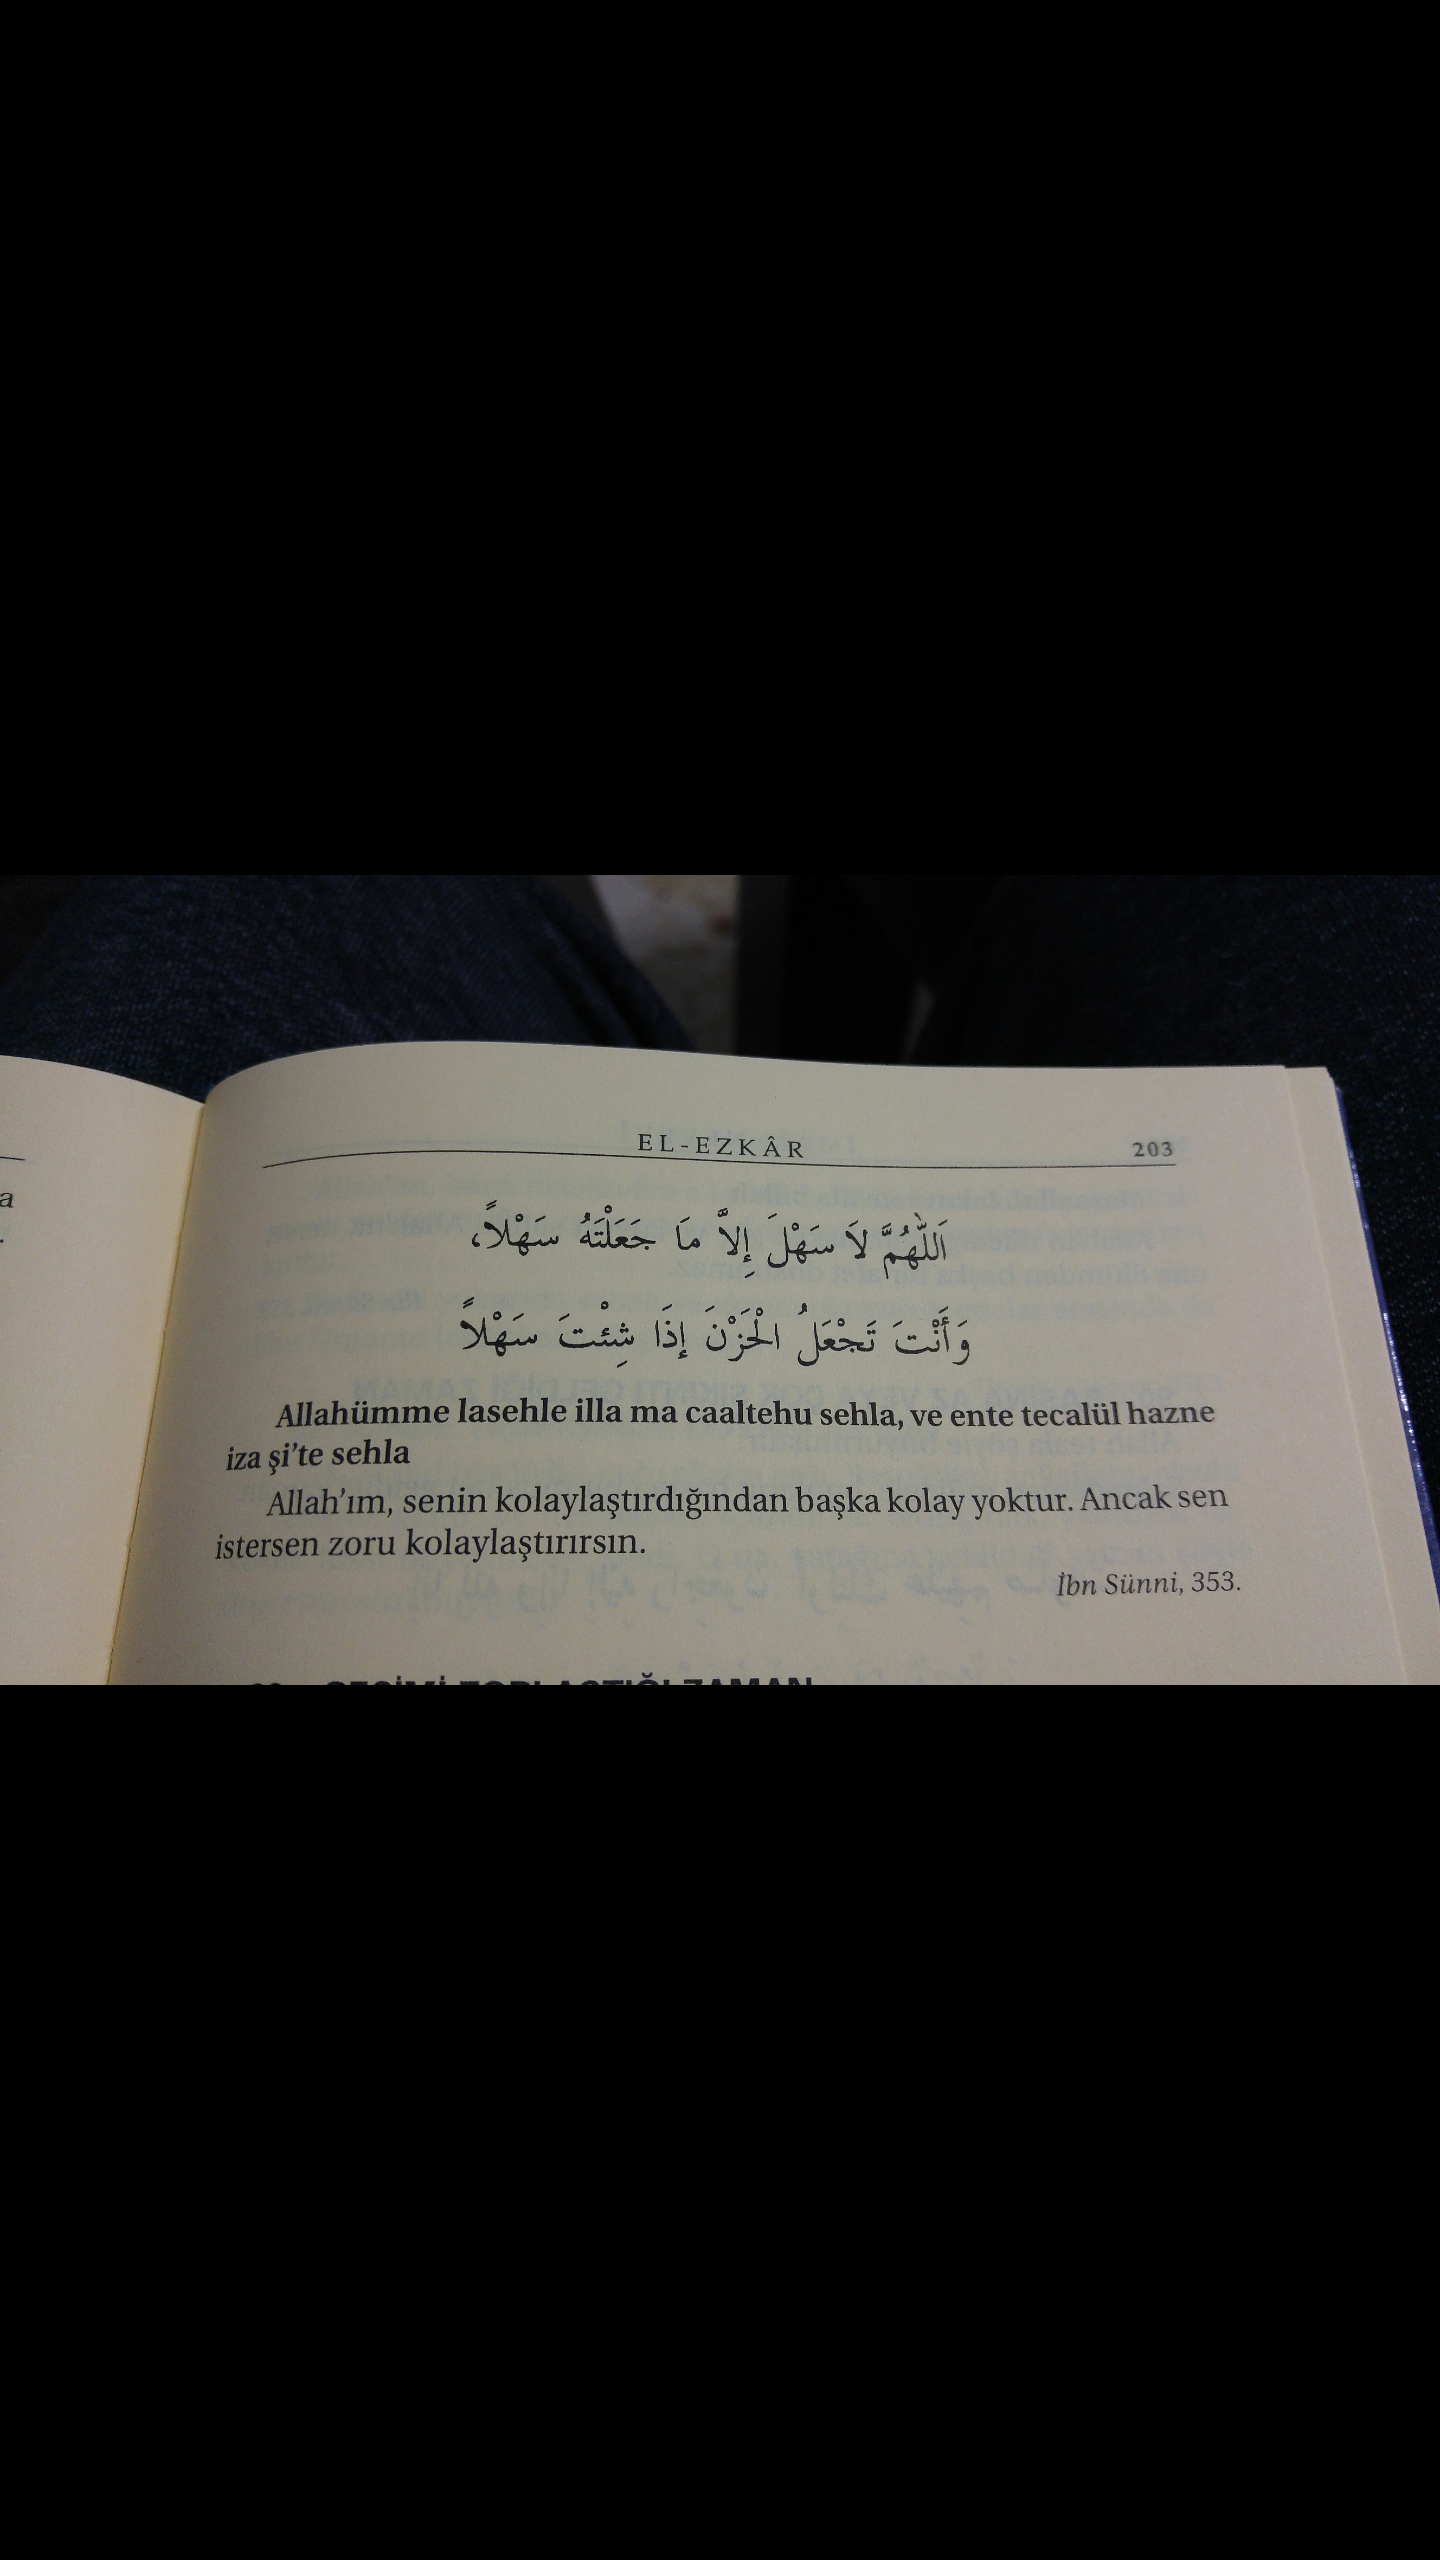 EL-EZKÂR 203
اَللّٰهُمَّ لاَ سَهْلَ إِلاَّ مَا جَعَلْتَهُ سَهْلاً،
وَأَنْتَ تَجْعَلُ الْحَزْنَ إِذَا شِئْتَ سَهْلاً
Allahümme lasehle illa ma caaltehu sehla, ve ente tecalül hazne
iza şi’te sehla
Allah’ım, senin kolaylaştırdığından başka kolay yoktur. Ancak sen
istersen zoru kolaylaştırırsın.
İbn Sünni, 353.
ZAMAN